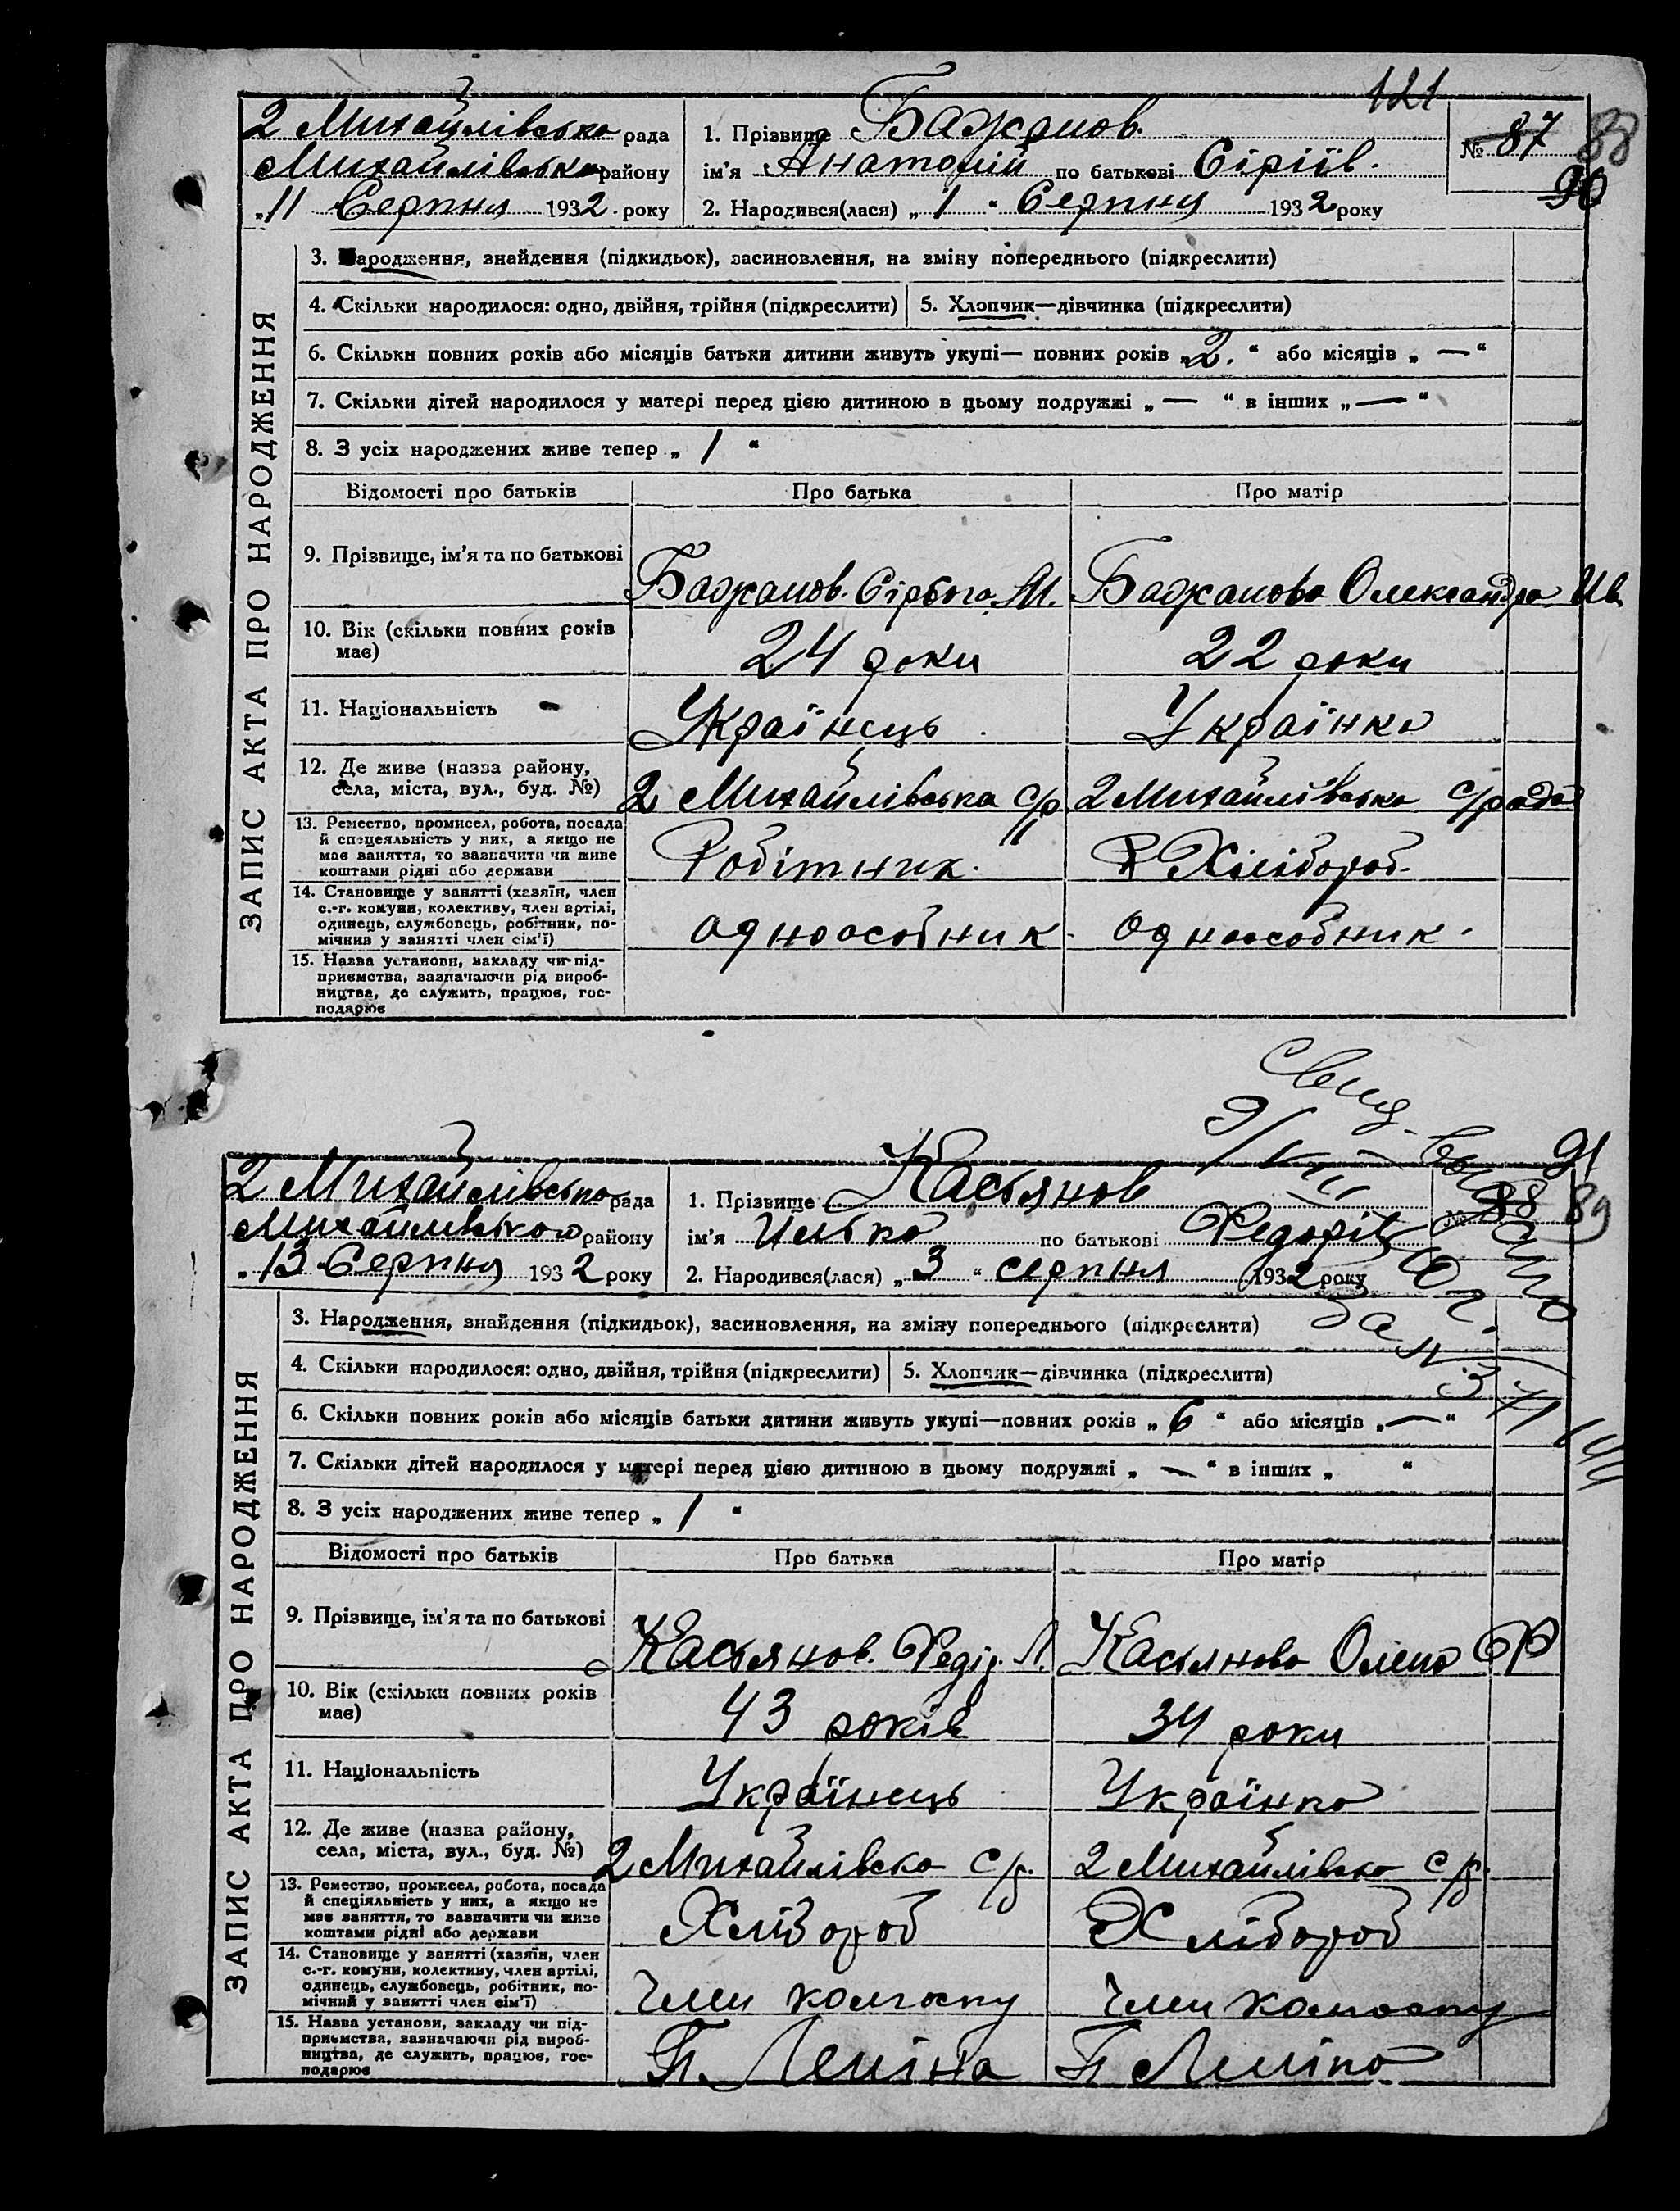 121
2 Михайлівська рада
Михайлівська району
„11 Серпня 1932 року
1. Прізвище Бажанов.
ім'я Анатолій по батькові Сіріїв.
2. Народився(лася) „1" Серпня 1932 року
№ 87 88
90
ЗАПИС АКТА ПРО НАРОДЖЕННЯ
3. Народження, знайдення (підкидьок), засиновлення, на зміну попереднього (підкреслити)
4. Скільки народилося: одно, двійня, трійня (підкреслити) 5. Хлопчик—дівчинка (підкреслити)
6. Скільки повних років або місяців батьки дитини живуть укупі— повних років „2." або місяців „—"
7. Скільки дітей народилося у матері перед цією дитиною в цьому подружжі „— " в інших „—"
8. З усіх народжених живе тепер „ 1 "
Відомості про батьків Про батька Про матір
9. Прізвище, ім'я та по батькові
Бажанов. Сірьога М. Бажанова Олександра Ив.
10. Вік (скільки повних років
має)
24 роки 22 роки
11. Національність
Українець Українка
12. Де живе (назва району,
села, міста, вул., буд. №)
2 Михайлівська с/р 2 Михайлівська с/рада
13. Ремество, промисел, робота, посада
й спецеяльність у них, а якщо не
має заняття, то зазначити чи живе
коштами рідні або держави
Робітник. Хлібороб.
14. Становище у занятті (хазяїн, член
с.-г. комуни, колективу, член артілі,
одинець, службовець, робітник, по-
мічнив у занятті член сім'ї)
одноособник. одноособник.
15. Назва установи, закладу чи під-
приємства, зазначаючи рід вироб-
ництва, де служить, працює, гос-
подарює
Свид-
9/VIII
91
2 Михайлівська рада
Михайлівського району
„13 Серпня 1932 року
1. Прізвище Касьянов
ім'я Илько по батькові Федорів
2. Народився(лася) „3" серпня 1932 року
№ 88 89
ЗАПИС АКТА ПРО НАРОДЖЕННЯ
3. Народження, знайдення (підкидьок), засиновлення, на зміну попереднього (підкреслити)
4. Скільки народилося: одно, двійня, трійня (підкреслити) 5. Хлопчик—дівчинка (підкреслити)
6. Скільки повних років або місяців батьки дитини живуть укупі—повних років „6" або місяців „—"
7. Скільки дітей народилося у матері перед цією дитиною в цьому подружжі „ — " в інших „ "
8. З усіх народжених живе тепер „ 1 "
Відомості про батьків Про батька Про матір
9. Прізвище, ім'я та по батькові
Касьянов. Федір. Л. Касьянова Олена Ф
10. Вік (скільки повних років
має)
43 років 34 роки
11. Національність
Українець Українка
12. Де живе (назва району,
села, міста, вул., буд. №)
2 Михайлівска с/р. 2 Михайлівска с/р.
13. Ремество, промисел, робота, посада
й спеціяльність у них, а якщо не
має заняття, то зазначити чи живе
коштами рідні або держави
Хлібороб Хлібороб
14. Становище у занятті (хазяїн, член
с.-г. комуни, колективу, член артілі,
одинець, службовець, робітник, по-
мічний у занятті член сім'ї)
Член колгоспу Член колгоспу
15. Назва установи, закладу чи під-
приємства, зазначаючи рід вироб-
ництва, де служить, працює, гос-
подарює
Леніна Леніна